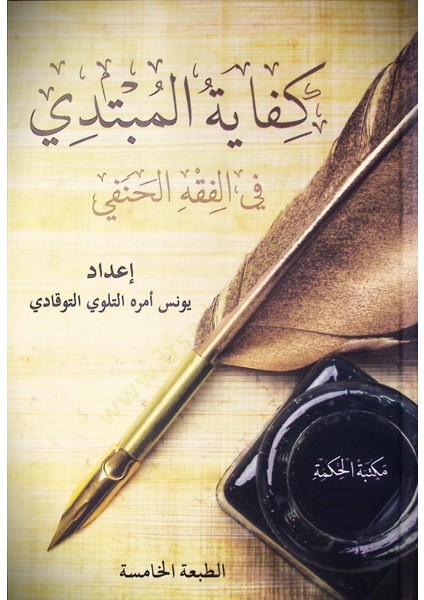 كِفاية المُبْتَدِي
في الفِقْهِ الحَنَفي
إعداد
يونس أمره التلوي التوقادي
مكتبة الحكمة
الطبعة الخامسة